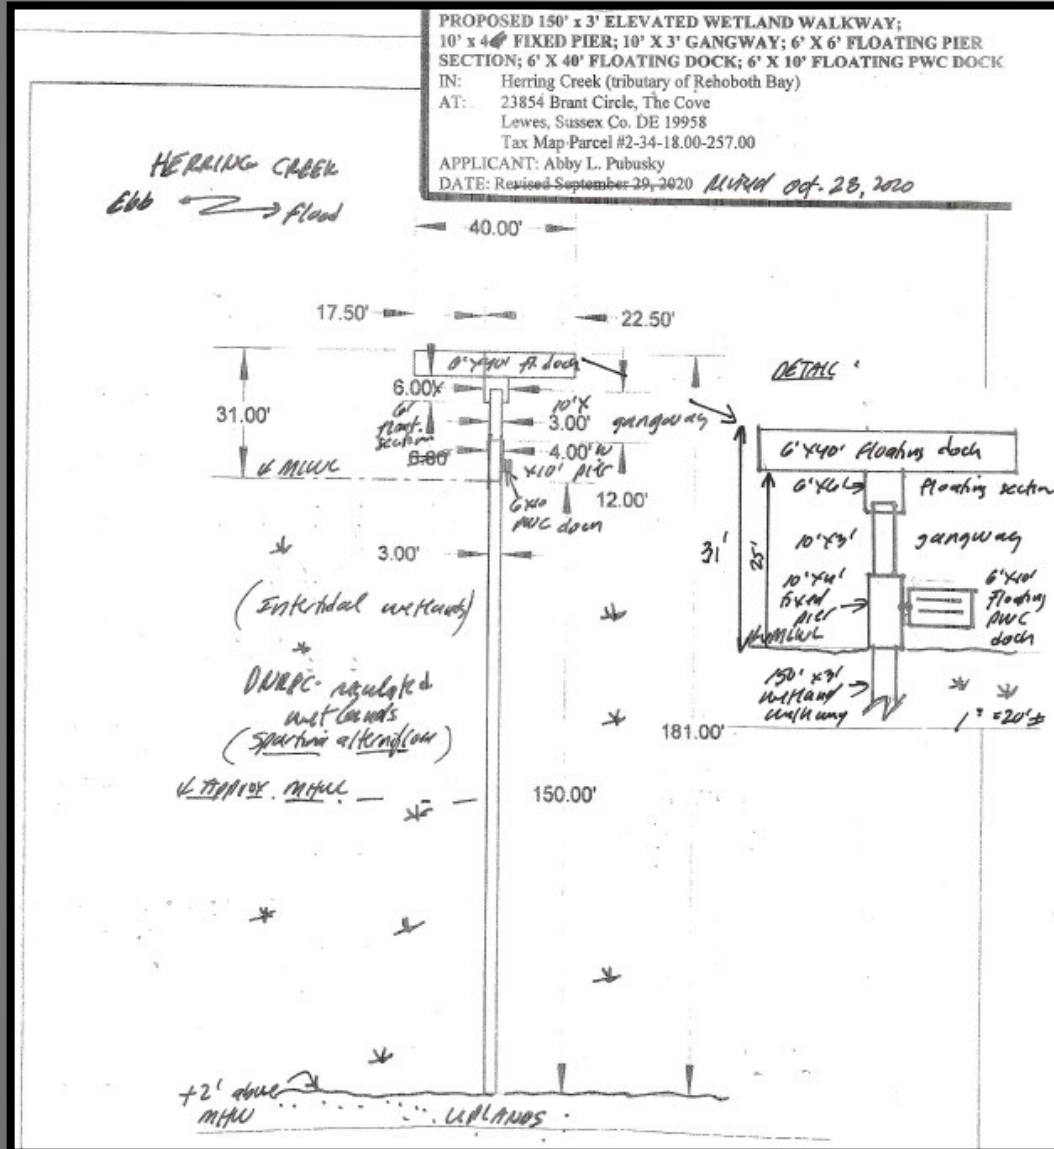 PROPOSED 150' x 3' ELEVATED WETLAND WALKWAY;
10' x 4' FIXED PIER; 10' X 3' GANGWAY; 6' X 6' FLOATING PIER
SECTION; 6' X 40' FLOATING DOCK; 6' X 10' FLOATING PWC DOCK
IN: Herring Creek (tributary of Rehoboth Bay)
AT: 23854 Brant Circle, The Cove
Lewes, Sussex Co. DE 19958
Tax Map Parcel #2-34-18.00-257.00
APPLICANT: Abby L. Pubusky
DATE: Revised September 29, 2020 Revised Oct. 28, 2020
HERRING CREEK
Ebb
Flood
40.00'
17.50'
22.50'
6'X40' fl. dock
31.00'
6.00'X
6'
float.
section
6.00
10'X
3.00'
gangway
4.00'W
X10' pier
MLWL
6X10
PWC dock
12.00'
3.00'
(Intertidal wetlands)
DNREC-regulated
wetlands
(Spartina alterniflora)
Approx. MHWL
150.00'
181.00'
+2' above
MHW
UPLANDS
DETAIL:
6'X40' Floating dock
6'X6'
Floating section
31'
25'
10'X3'
gangway
10'X4'
fixed
pier
6'X10'
Floating
PWC
dock
MLWL
150' X 3'
wetland
walkway
1" = 20'±